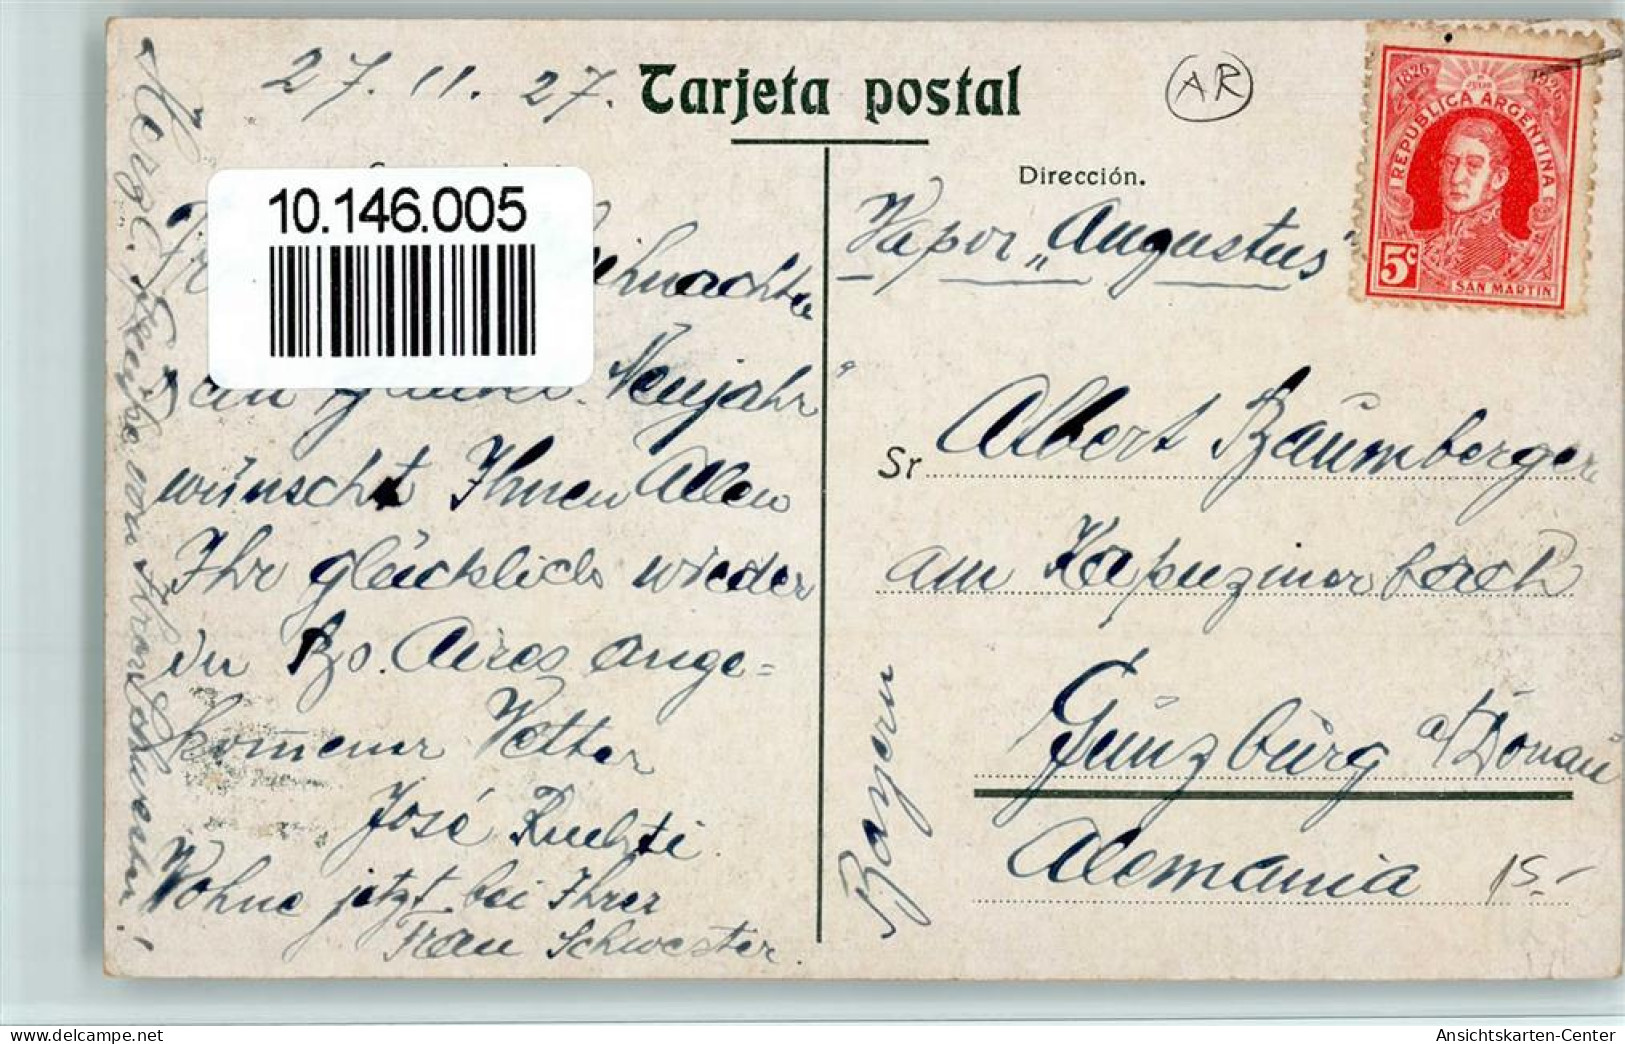 27. 11. 27.
Tarjeta postal
AR
1826 1926
REPUBLICA ARGENTINA
5c
SAN MARTIN
Dirección.
10.146.005
Vapor „Augustus“
Neujahr
wünscht Ihnen Allen
Ihr glücklich wieder
in Bs. Aires ange=
kommener Vetter
José
Wohne jetzt bei Ihrer
Frau Schwester.
Herzl. Grüße von Frau Schwester!
Sr Albert Baumberger
am Kapuzinerbach
Günzburg a/Donau
Alemania
Bayern
15.-
www.delcampe.net
Ansichtskarten-Center